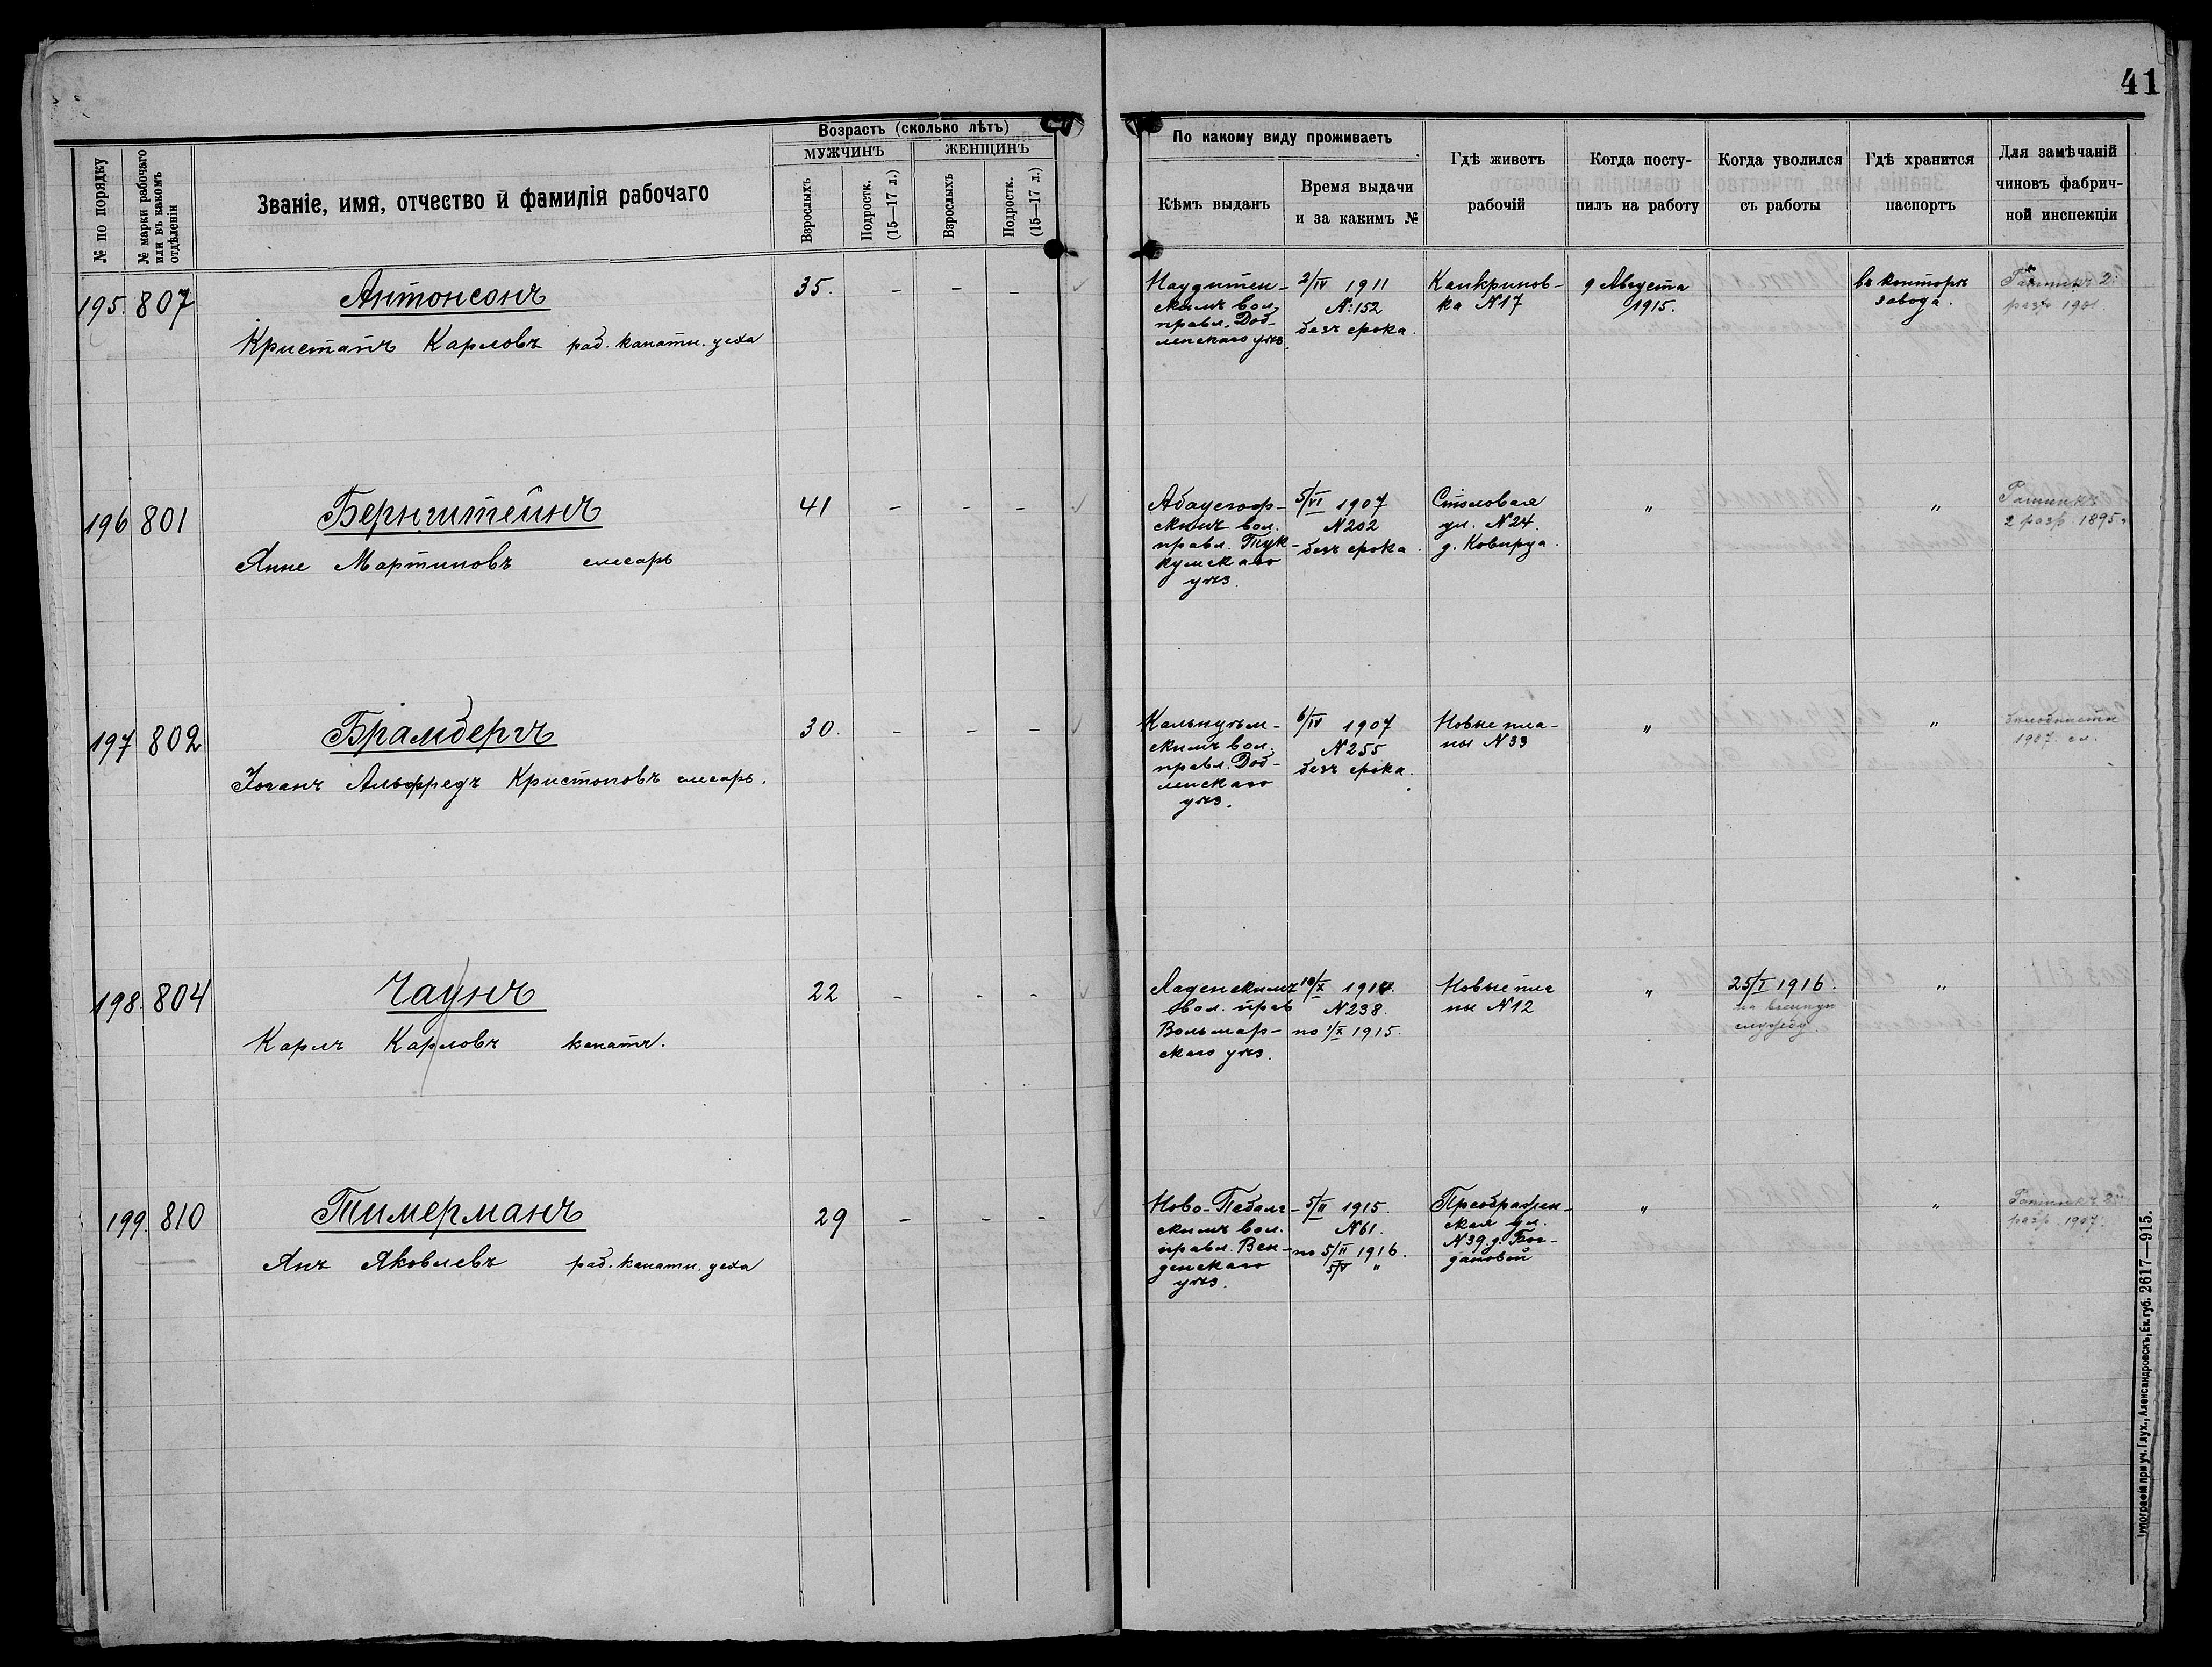 41
№ по порядку
№ марки рабочаго или въ какомъ отдѣленіи
Званіе, имя, отчество и фамилія рабочаго
Возрастъ (сколько лѣтъ)
МУЖЧИНЪ
ЖЕНЩИНЪ
Взрослыхъ
Подростк. (15—17 л.)
Взрослыхъ
Подростк. (15—17 л.)
По какому виду проживаетъ
Кѣмъ выданъ
Время выдачи
и за какимъ №
Гдѣ живетъ
рабочій
Когда посту-
пилъ на работу
Когда уволился
съ работы
Гдѣ хранится
паспортъ
Для замѣчаній
чиновъ фабрич-
ной инспекціи
195. 807
Антонсонъ
Кристапъ Карловъ раб. канатн. цеха
35. - - -
скимъ вол.
правл. Доб-
ленскаго уѣз.
2/IV 1911
№ 152
безъ срока.
Канкринов-
ка №17
9 Августа
1915.
въ конторѣ
завода.
Ратникъ 2
разр 1901
196 801
Бернштейнъ
Янне Мартиновъ слесарь
41 - - -
скимъ вол.
правл. Тук-
кумскаго
уѣз.
5/VI 1907
№202
безъ срока.
Столовая
ул. №24.
"
"
Ратникъ
2 разр. 1895
197 802
Брамбергъ
Іоганъ Альфредъ Кристоповъ слесарь.
30. - - -
скимъ вол.
правл. Доб-
ленскаго
уѣз.
6/IV 1907
№255
безъ срока.
Новые пла-
ны №33
"
"
1907
198. 804
Чаунъ
Карлъ Карловъ канатч.
22 - - -
вол. прав
Вольмар-
скаго уѣз.
№238.
по 1/X 1915.
Новые пла
ны №12
"
25/I 1916.
на военную
службу.
"
199. 810
Тимерманъ
Янъ Яковлевъ раб. канатн. цеха
29 - - -
Ново-Пебалг-
скимъ вол.
правл. Вен-
денскаго
уѣз.
5/II 1915.
№61.
по 5/II 1916.
5/V "
Преображен-
ская ул.
№39. д. Бог-
дановой
"
"
Ратникъ 2
разр. 1907.
Типографія при уч. Глух., Александровскъ, Ек. губ. 2617—915.